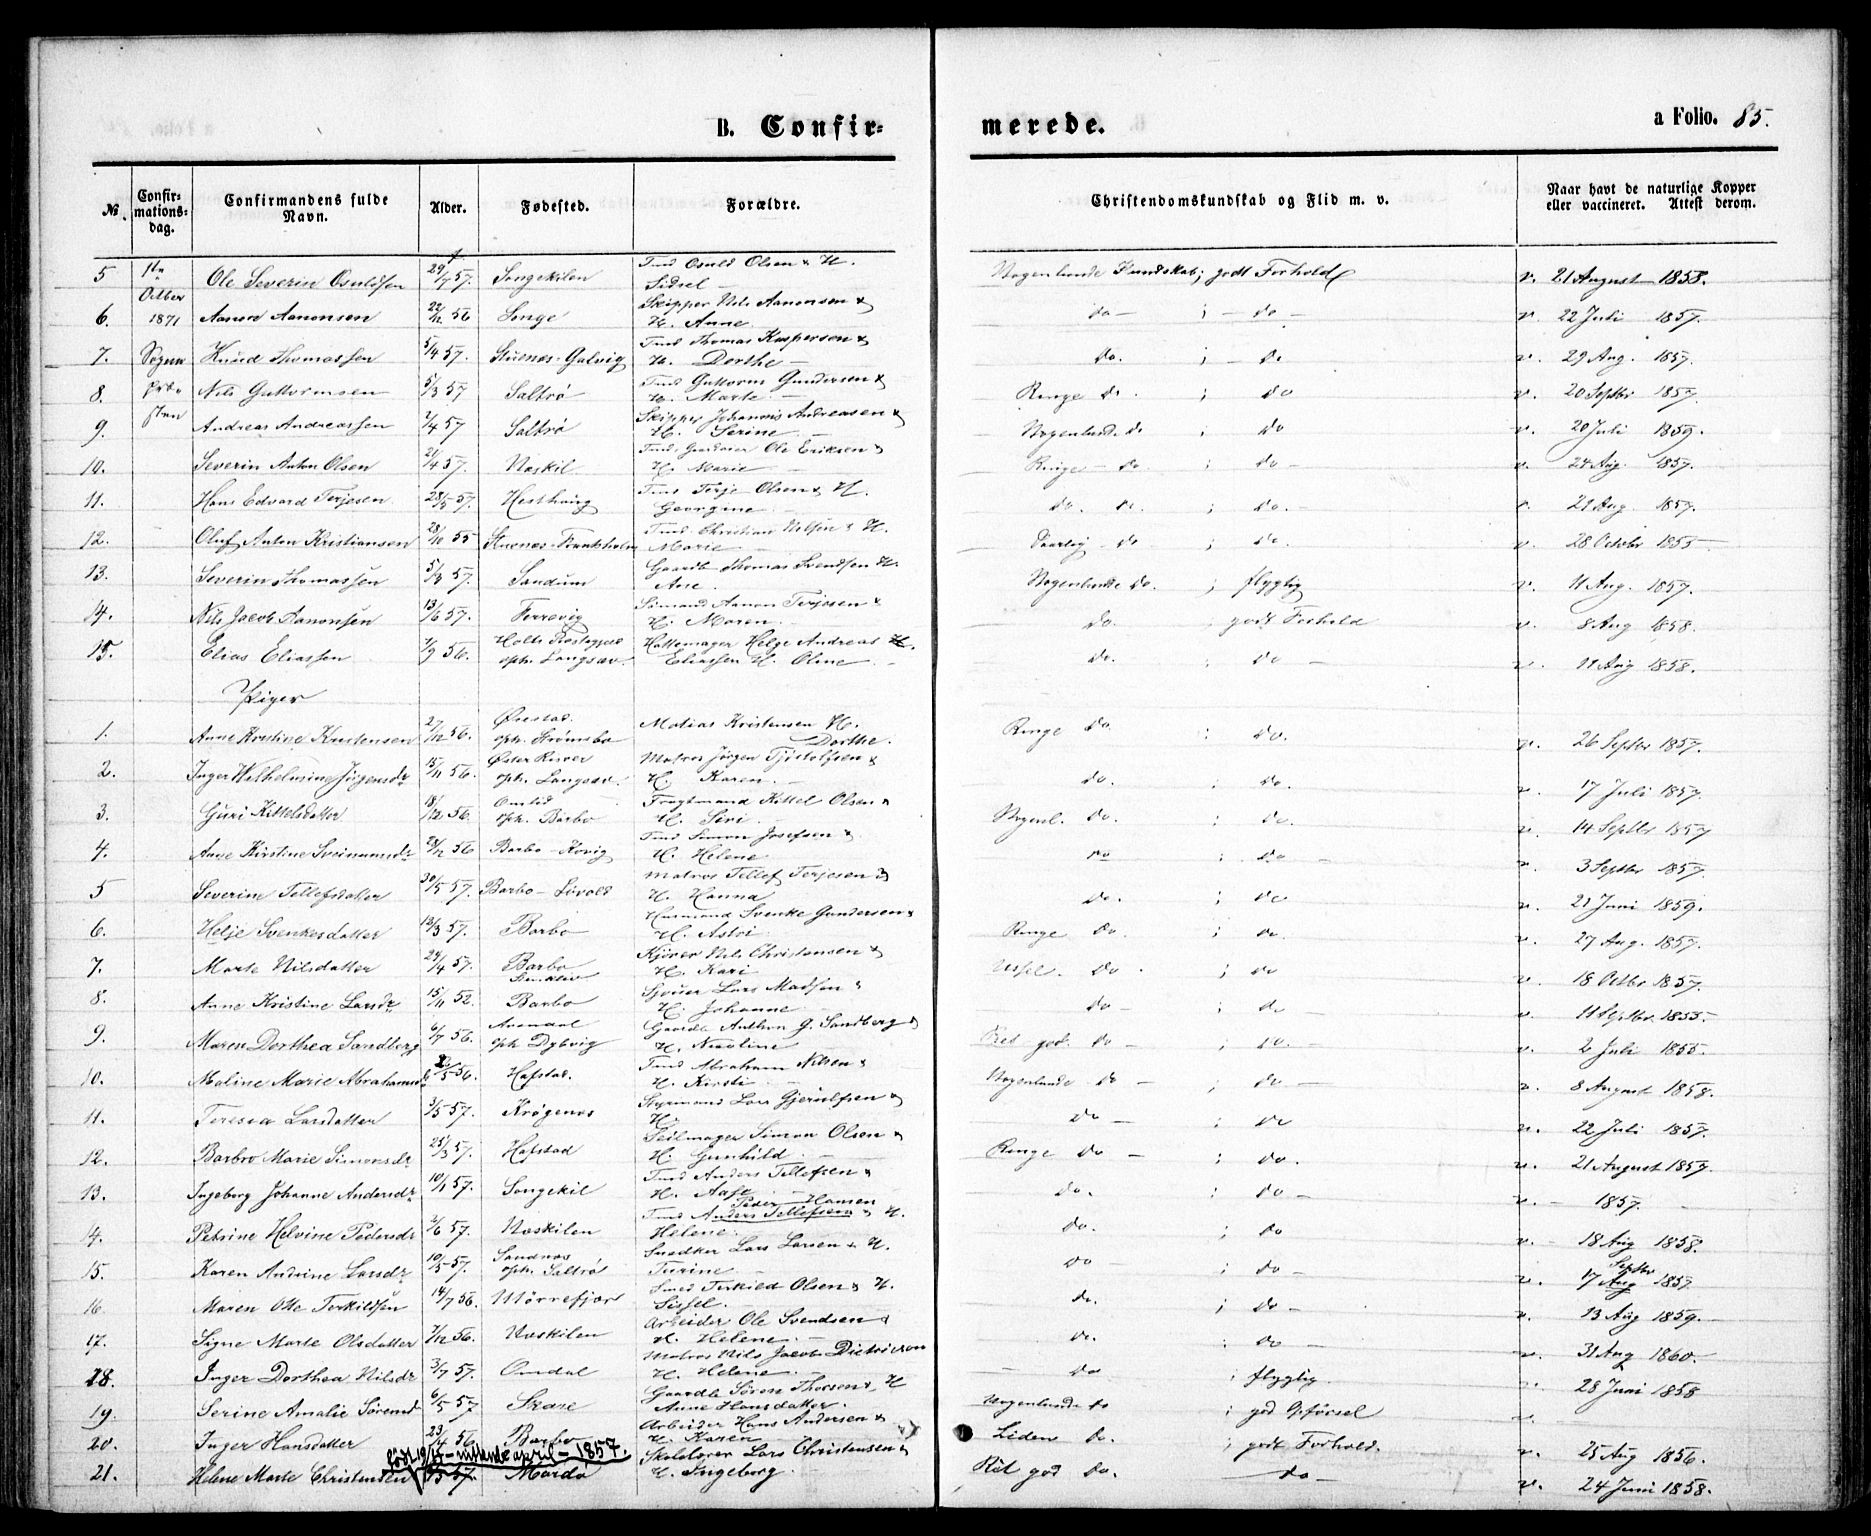 B. Confir-
merede.
a Folio. 85.
№. Confir-mations-dag. Confirmandens fulde Navn. Alder. Fødested. Forældre. Christendomskundskab og Flid m. v. Naar havt de naturlige Kopper eller vaccineret. Attest derom.
5 1ste Ole Severin Osuldsen 29/7 57. Songekilen Tmd Osuld Olsen & H. Sidsel Nogenlunde Kundskab; godt Forhold v. 21 August 1858.
Octber
6. 1871 Aanon Aanonsen 22/12 56 Songe Skipper Nils Aanonsen & H. Anne do ; do v. 22 Juli 1857.
7. Sogne Knud Thomassen 5/4 57. Stuenæs-Galvig Tmd Thomas Kaspersen & H. Dorthe do. ; do v. 29 Aug. 1857.
8. Nils Guttormsen 5/3 57 Saltrø Tmd Guttorm Gundersen & H. Marte Ringe do. ; do v. 20 Septbr 1857.
9. Andreas Andreassen 7/4 57 Saltrø Skipper Johannis Andreasen & H. Serine Nogenlunde do ; do v. 20 Juli 1859.
10. Severin Anton Olsen 21/4 57. Næskil Tmd Ole Eriksen & H. Marie Ringe do ; do v. 24 Aug. 1857.
11. Hans Edvard Terjesen 28/5 57 Hesthaug Tmd Terje Olsen & H. Georgine do. do. ; do. v. 21 Aug 1857.
12. Oluf Anton Kristiansen 28/10 55 Stuenæs- Tmd Christian Nilsen & H. Marie do ; do. v. 28 Octobr 1855
13. Severin Thomassen 5/3 57. Sandum Gaardb Thomas Svendsen H. Ane Nogenlunde do. ; flyglig v. 11 Aug. 1857.
14. Nils Jacob Aanonsen 13/6 57. Ferrevig Sømand Aanon Terjesen & H. Maren do ; godt Forhold v. 8 Aug 1858.
15. Elias Eliassen 7/9 56. Holts Præstegjeld oph. Langsæv. Hattemager Helge Andreas Eliassen H. Oline do. ; do v. 11 Aug 1858.
Piger
1. Anne Kristine Kristensen 27/12 56. Øiestad. oph. Strømsbo Matias Kristensen H. Dorthe. Ringe do ; do. v. 26 Septbr 1857.
2. Inger Wilhelmine Jørgensdr 15/11 56. Øster Risøer oph. Langsæv. Matros Jørgen H. Karen do. ; do. v. 17 Juli 1857.
3. Guri Kittelsdatter 18/12 56. Omlid oph. Barbo Fragtmand Kittel Olsen & H. Siri Nogenl. do. ; do. v. 14 Septbr 1857
4. Anne Kirstine Sveimunsdr 28/12 56 Barbo-Kovig Tmd Simon Josefsen & H. Helene do ; do v. 3 Septbr 1857.
5 Severine Tellefsdatter 30/5 57. Barbo-Løvold Matros Tellef Terjesen & H. Hanna do. ; do v. 21 Juni 1859.
6. Helje Svenkesdatter 13/3 57. Barbo Husmand Svenke Gundersen & H. Astri Ringe do. ; do. v. 27 Aug. 1857.
7. Marte Nilsdatter 24/4 57. Barbo Kjører Nils Christensen & H. Kari do. ; do v. 18 Octbr 1857.
8. Anne Kristine Larsdr 15/11 52. Barbo Sjouer Lars Madsen & H. Johanne do ; do v. 11 Septbr 1855.
9. Maren Dorthea Sandberg 6/7 56. Arendal oph Dybvig Gaardb Anthon G. Sandberg & H. Nicoline Ret god. do ; do. v. 2 Juli 1855.
10. Maline Marie Abrahamsdr 5 56. Hafstad. Tmd Abraham Nilsen & H. Kirsti Nogenlunde do ; do v. 8 August 1858.
11. Teresia Larsdatter 3/5 57. Krøgenes Styrmand Lars Gjerulfsen & H. do ; do v. 22 Juli 1857.
12. Barbro Marie Simonsdr 25/3 57. Hafstad Seilmager Simon Olsen & H. Gunhild Ringe do ; do. v. 21 August 1857.
13. Ingeborg Johanne Andersdr 10/1 57. Songekil Tmd Anders Tellefsen & H. Aase do. ; do v. 1857.
14. Petrine Helvine Pedersdr 2/6 57. Næskilen Tmd Peder Hansen Anders Tellefsen & H. Helene do. ; do v. 18 Aug 1858.
15. Karen Andrine Larsdr 10/5 57. Sandnæs oph. Saltrø Snedker Lars Larsen & H. Turine do ; do v. 17 Septbr Aug 1857.
16. Maren Otte Terkildsen 14/7 56. Mørrefjær Smed Terkild Olsen & H. Sissel. do. ; do v. 13 Aug 1859.
17. Signe Marte Olsdatter 7/12 56. Næskilen Arbeider Ole Svendsen & H. Helene do. ; do v. 31 Aug 1860.
18. Inger Dorthea Nilsdr 3/7 57. Omdal Matros Nils Jacob H. Helene do ; flyglig. v. 28 Juni 1858
19. Serine Amalie Sørensd 6/5 57 Skare Gaardb Søren Thorsen & H Anne Hansdatter. Nogenlunde do ; god Opførsel v.
20. Inger Hansdatter 23/4 56 Barbo Arbeider Hans Andersen & H. Karen Liden do. ; godt Forhold. v. 25 Aug 1856.
født 19/4 - nittende april - 1857.
21. Helene Marte Christensen 57. Mærdø Skolelærer Lars Christensen & H. Ingeborg. Ret god do. do v. 24 Juni 1858.